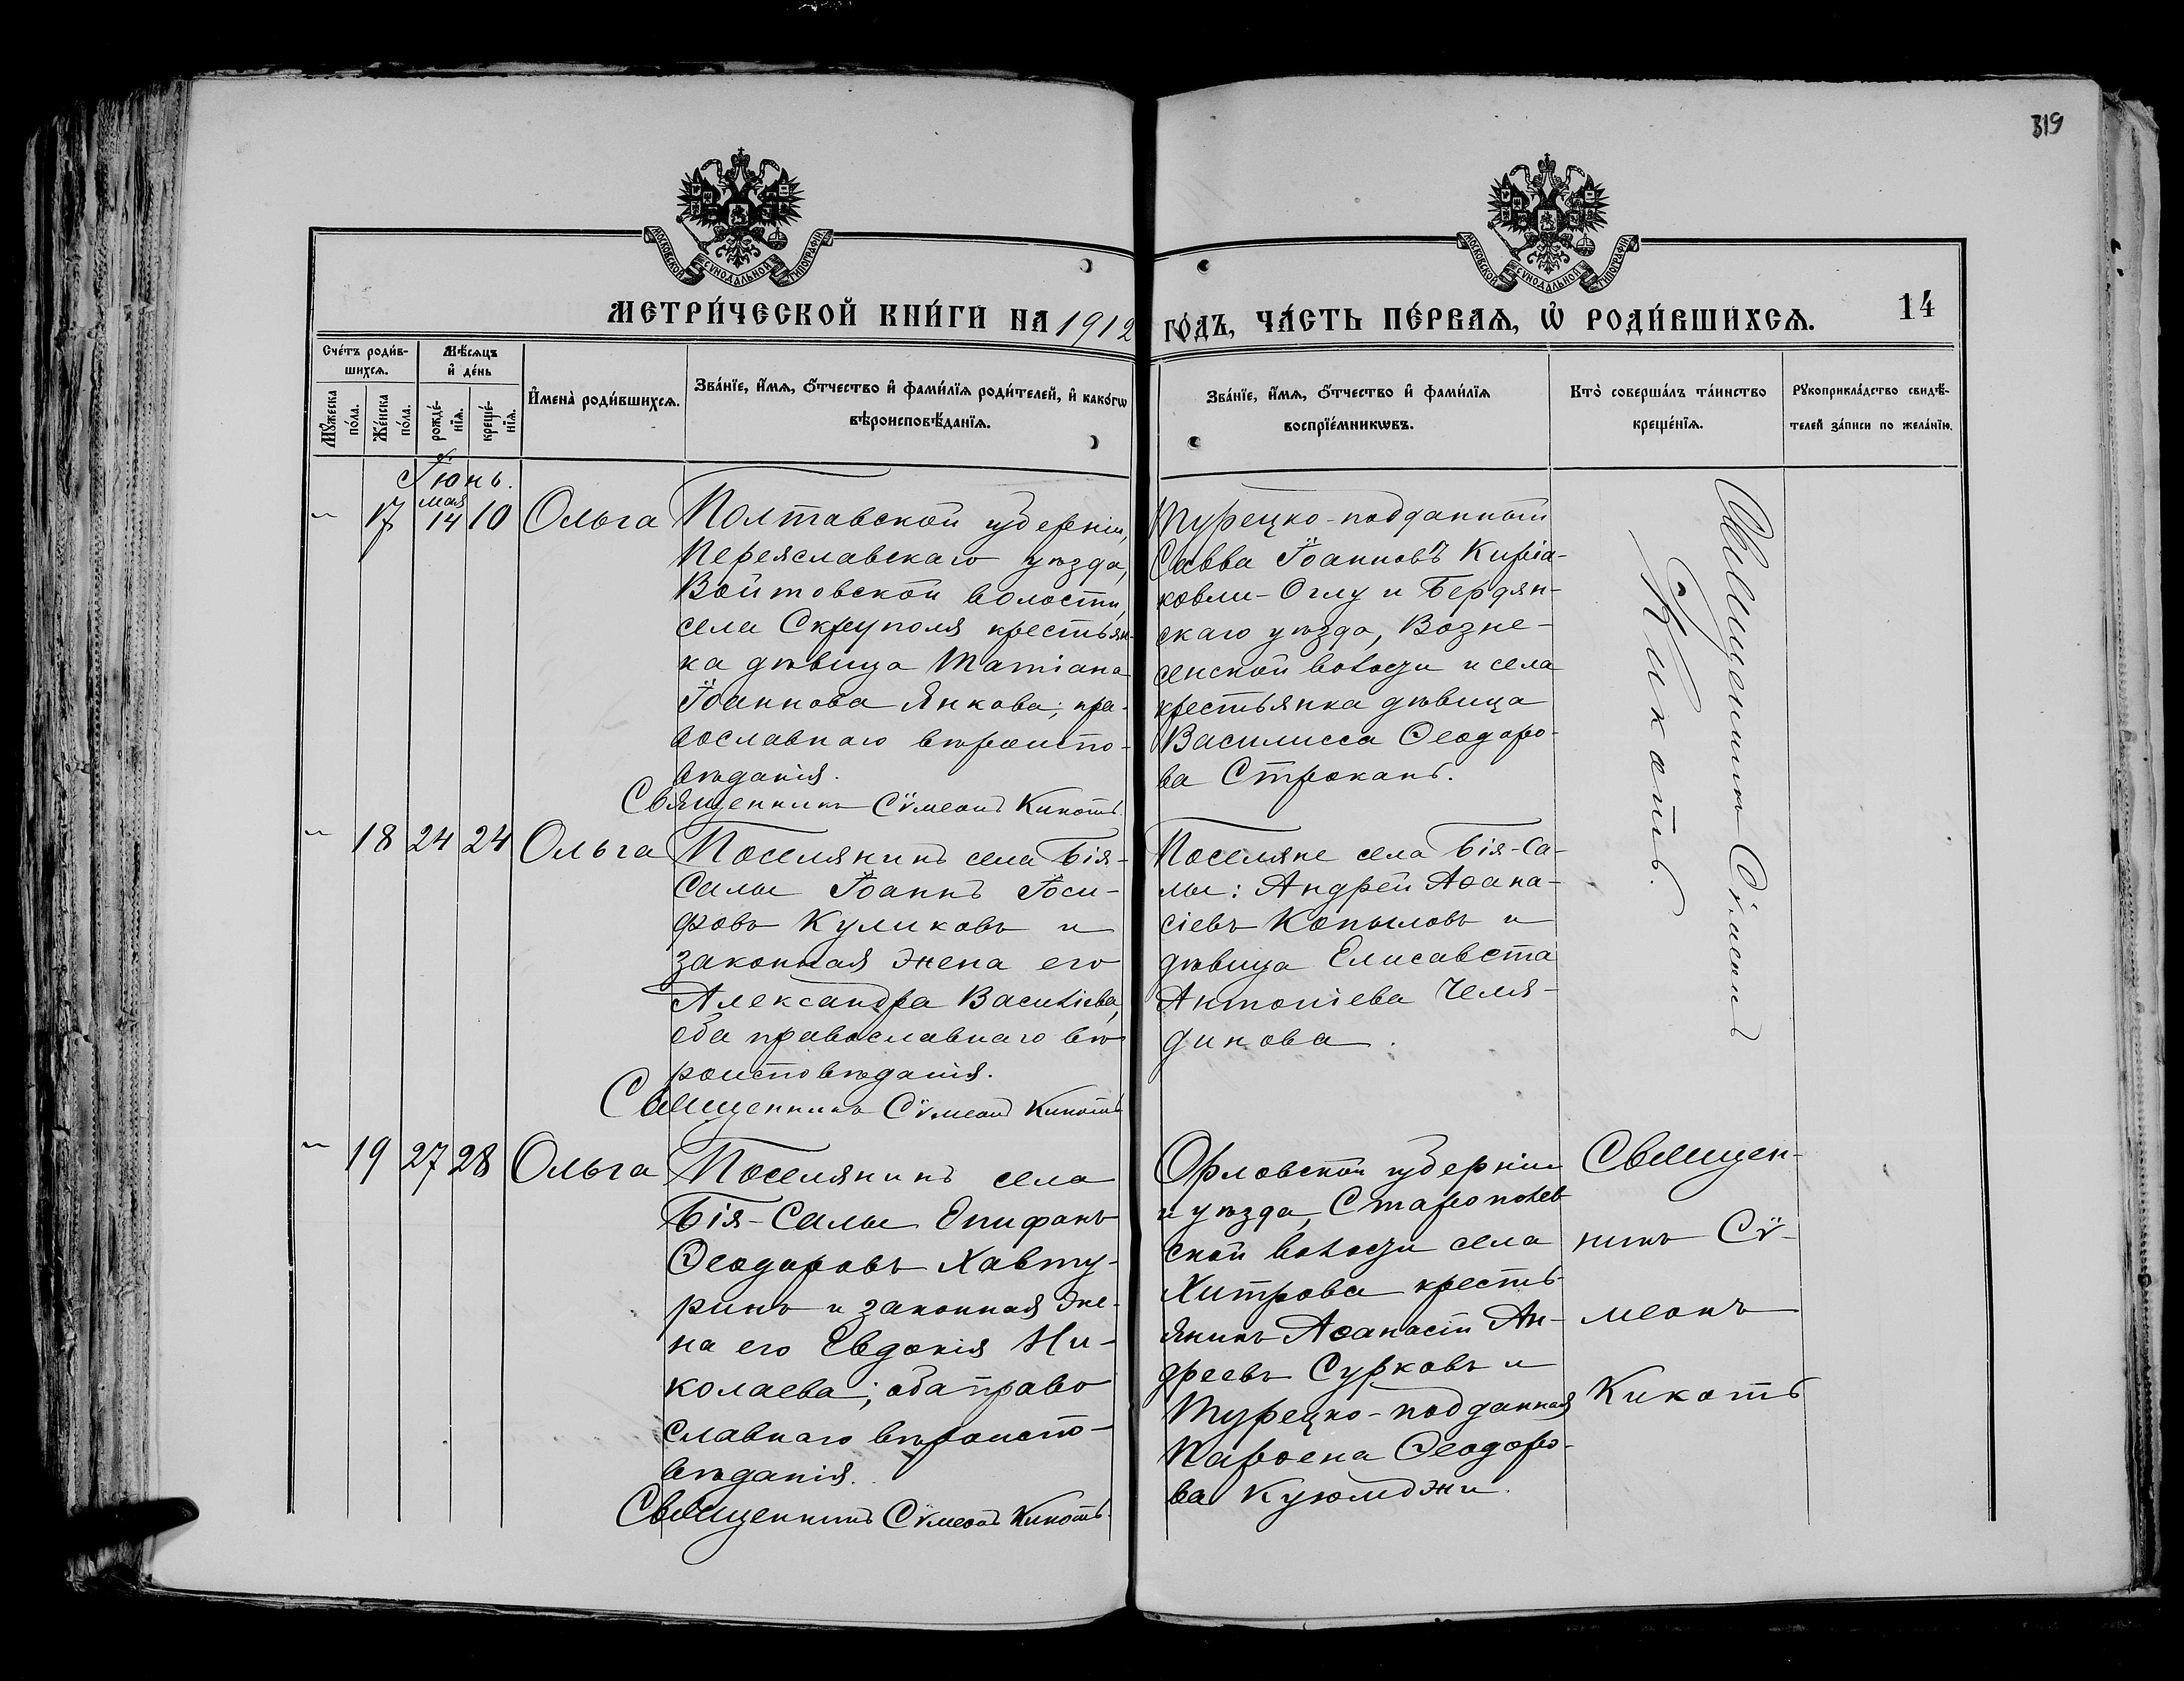 319
МОСКОВСКОЙ СѴНОДАЛЬНОЙ ТИПОГРАФІИ
МОСКОВСКОЙ СѴНОДАЛЬНОЙ ТИПОГРАФІИ
МЕТРИ́ЧЕСКОЙ КНИ́ГИ НА 1912 ГО́ДЪ, ЧА́СТЬ ПЕ́РВАѦ, Ѡ҆ РОДИ́ВШИХСѦ.
14
Сче́тъ роди́в-
шихсѧ.
Мѣ́сѧцъ
и҆ де́нь
Мꙋ́жеска
по́ла.
Же́нска
по́ла.
рожде́-
нїѧ.
креще́-
нїѧ.
И҆мена̀ роди́вшихсѧ.
Зва́нїе, и҆́мѧ, ѻ҆́тчество и҆ фами́лїѧ роди́телей, и҆ како́гѡ
вѣроисповѣ́данїѧ.
Зва́нїе, и҆́мѧ, ѻ҆́тчество и҆ фами́лїѧ
воспрїе́мникѡвъ.
Кто̀ соверша́лъ та́инство
креще́нїѧ.
Рꙋкоприкла́дство свидѣ́-
телей за́писи по жела́нїю.
Іюнь.
мая
" 17 14 10 Ольга
Полтавской губерніи,
Переяславскаго уѣзда,
Войтовской волости,
села Скреуполя крестьян-
ка дѣвица Татіана
Іоаннова Янкова; пра-
вославнаго вѣроиспо-
вѣданія.
Священникъ Сѷмеонъ Кикоть.
Турецко-подданный
Савва Іоанновъ Киріа-
ковли-Оглу и Бердян-
скаго уѣзда, Возне-
сенской волости и села
крестьянка дѣвица
Василисса Ѳеодоро-
ва Строкань.
Священникъ Сѷмеонъ
Кикоть.
" 18 24 24 Ольга
Поселянинъ села Бія-
Салы Іоаннъ Іоси-
фовъ Куликовъ и
законная жена его
Александра Василіева,
оба православнаго вѣ-
роисповѣданія.
Священникъ Сѷмеонъ Кикоть
Поселяне села Бія-Са-
лы: Андрей Аѳана-
сіевъ Копыловъ и
дѣвица Елисавета
Антоніева Челя-
динова.
" 19 27 28 Ольга
Поселянинъ села
Бія-Салы Епифанъ
Ѳеодоровъ Хавту-
ринъ и законная же-
на его Евдокія Ни-
колаева; оба право
славнаго вѣроиспо-
вѣданія.
Священникъ Сѷмеонъ Кикоть.
Орловской губерніи
и уѣзда, Старополев
ской волости села
Хитрова кресть-
янинъ Аѳанасій Ан-
дреевъ Сурковъ и
Турецко-подданная
Парѳена Ѳеодоро-
ва Куюмджи.
Священ-
никъ Сѷ-
меонъ
Кикоть